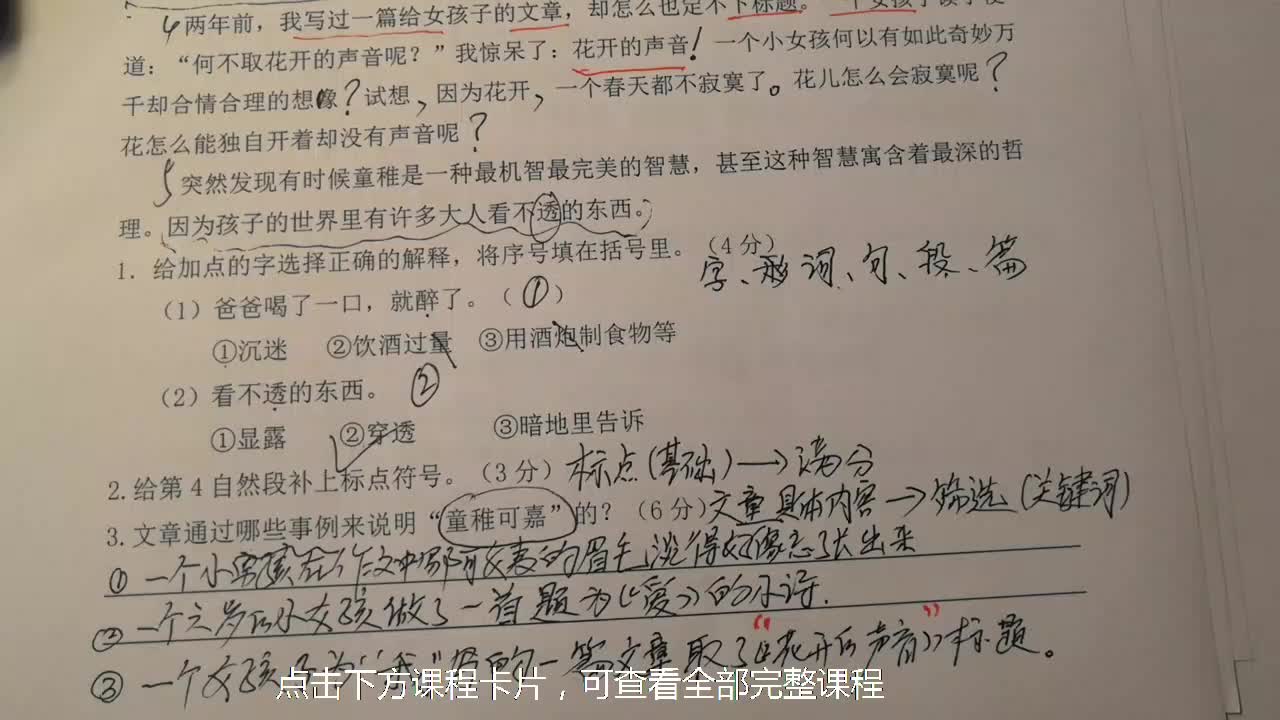 4 两年前，我写过一篇给女孩子的文章，却怎么也定不下标题。一个女孩子
道：“何不取花开的声音呢？”我惊呆了：花开的声音！一个小女孩何以有如此奇妙万
千却合情合理的想像？试想，因为花开，一个春天都不寂寞了。花儿怎么会寂寞呢？
花怎么能独自开着却没有声音呢？
5 突然发现有时候童稚是一种最机智最完美的智慧，甚至这种智慧寓含着最深的哲
理。因为孩子的世界里有许多大人看不透的东西。
1. 给加点的字选择正确的解释，将序号填在括号里。（4分）
字、 词、句、段、篇
（1）爸爸喝了一口，就醉了。（①）
①沉迷 ②饮酒过量 ③用酒炮制食物等
（2）看不透的东西。 ②
①显露 ②穿透 ③暗地里告诉
2.给第4自然段补上标点符号。（3分）标点(基础)→满分
3.文章通过哪些事例来说明“童稚可嘉”的？（6分）文章具体内容→筛选(关键词)
① 一个小男孩在作文中 的眉毛淡得好像忘了长出来
② 一个六岁的小女孩做了一首题为《爱》的小诗.
③ 一个女孩子为“我”写的一篇文章取了“《花开的声音》”标题。
点击下方课程卡片，可查看全部完整课程